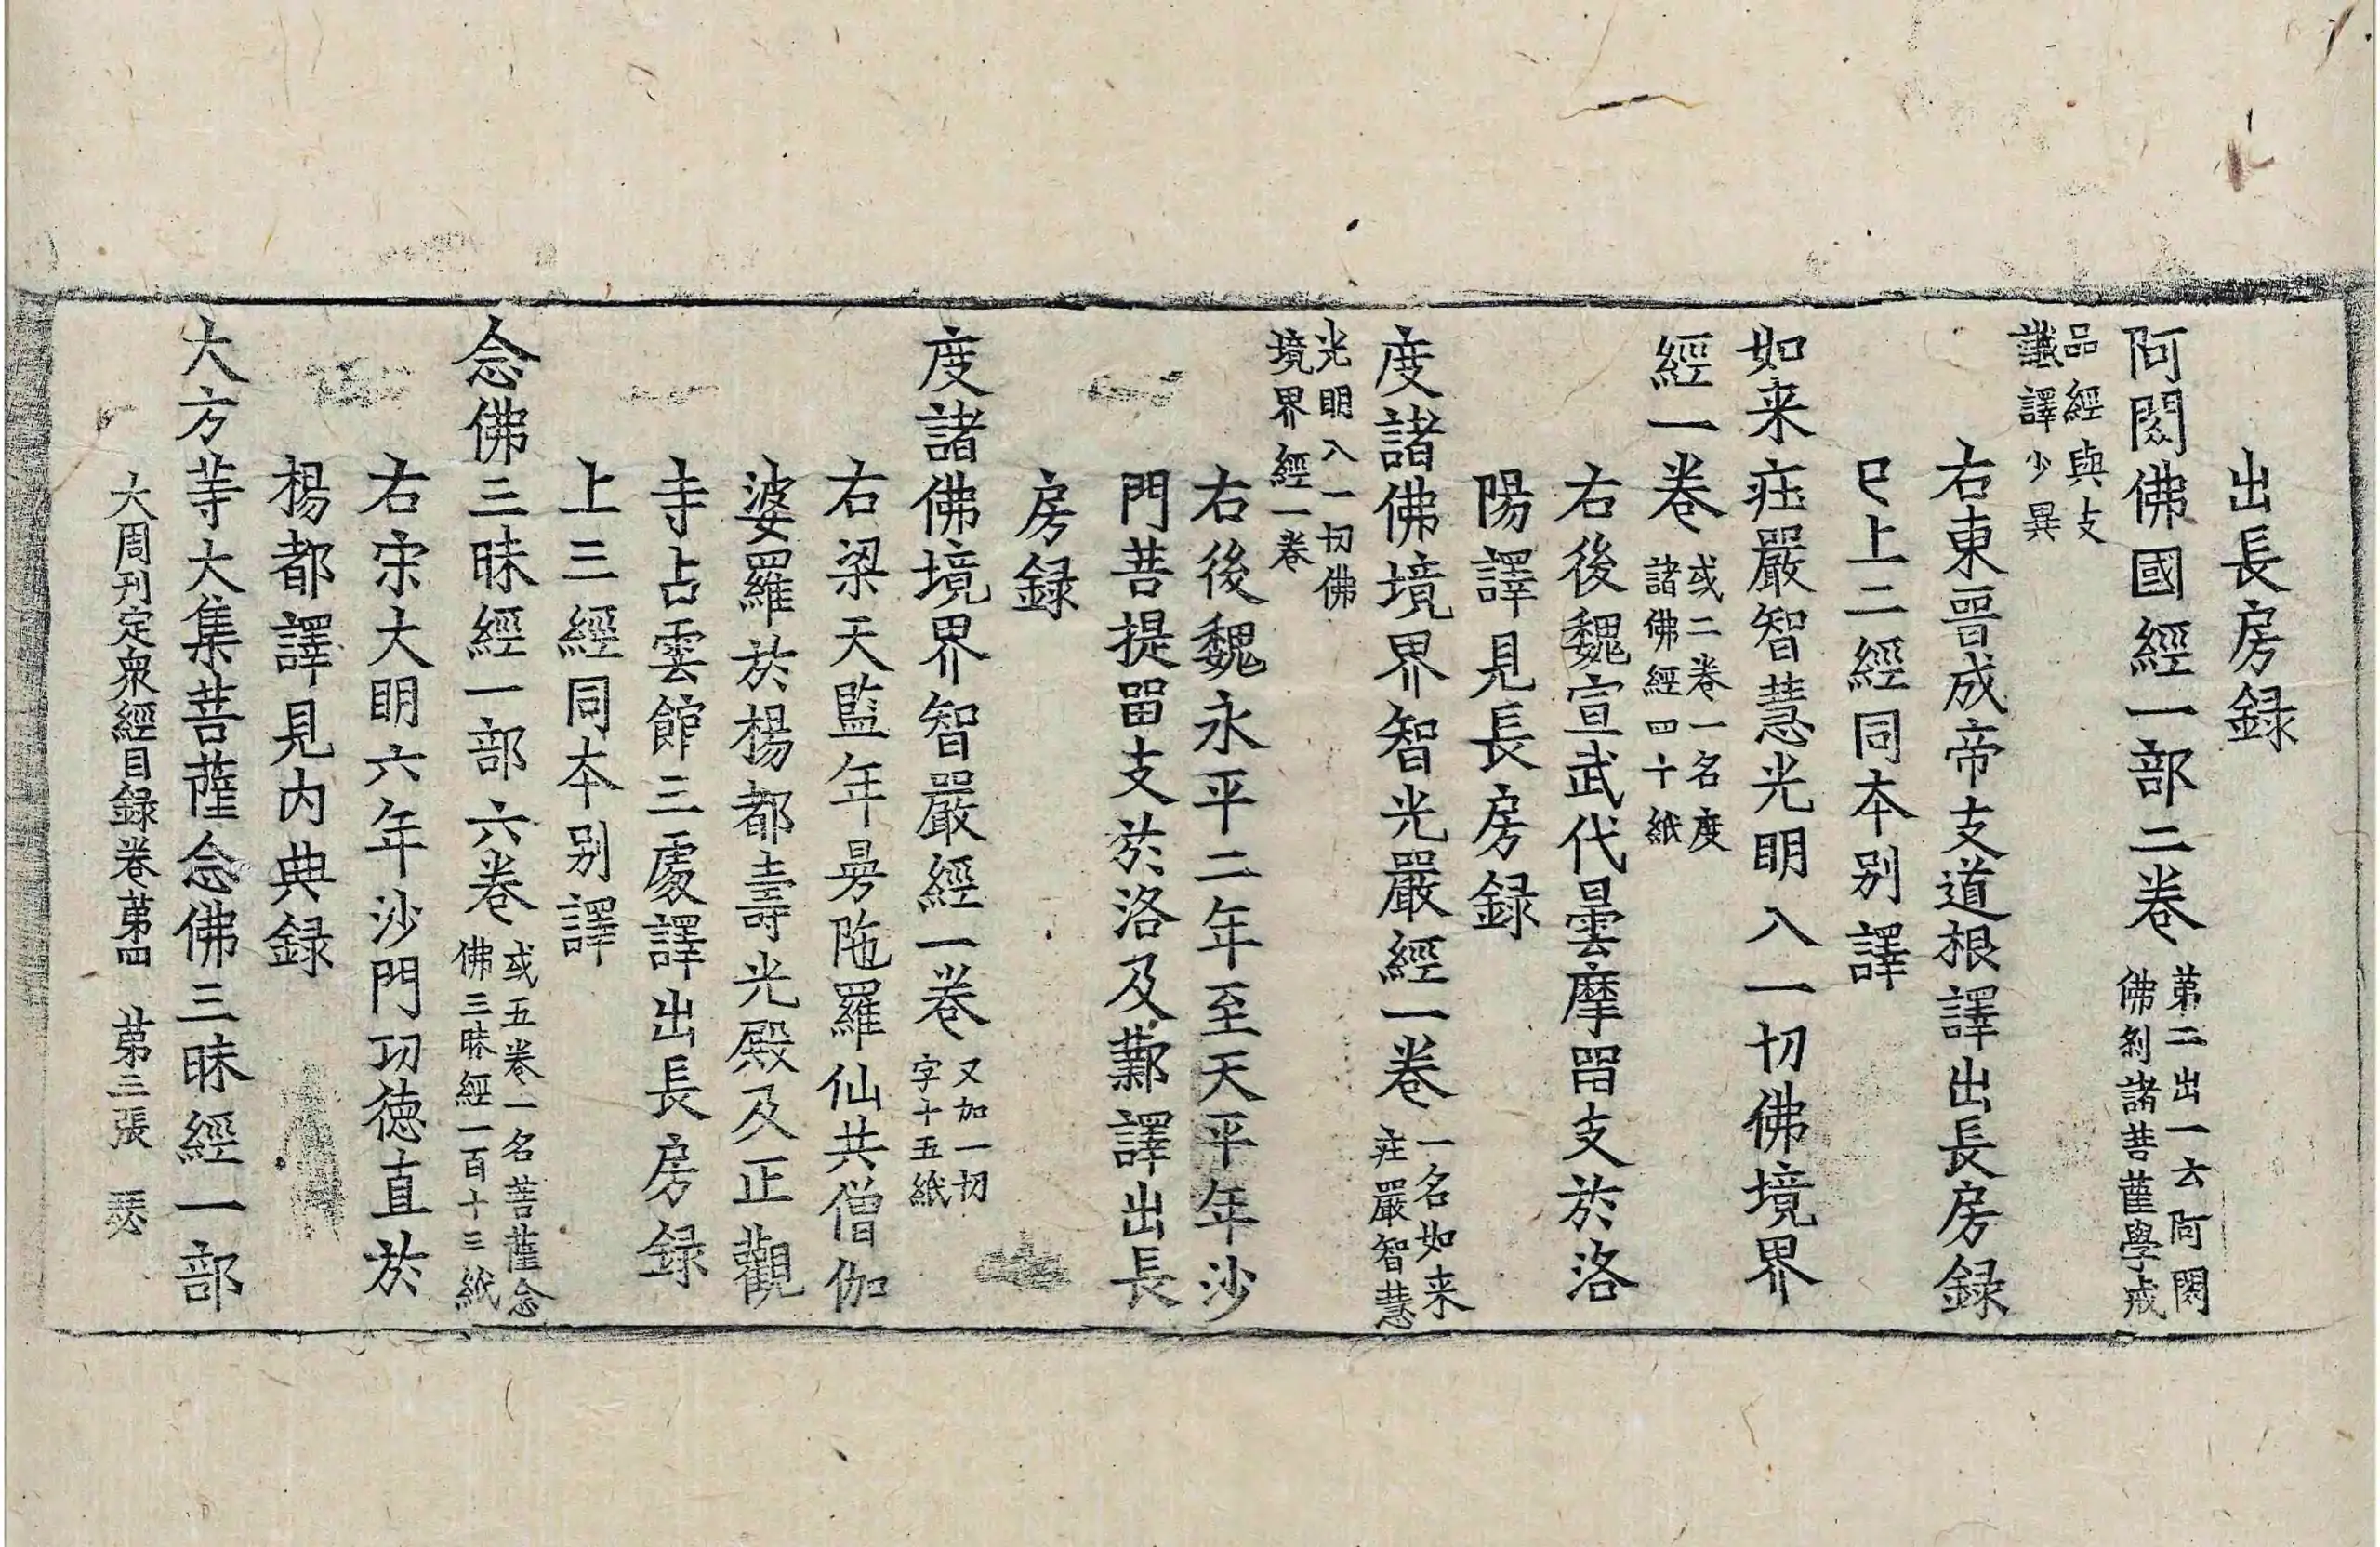 出長房録
阿閦佛國經一部二卷 第二出一云阿閦
佛刹諸菩薩學成
品經與支
讖譯少異
右東晋成帝支道根譯出長房録
已上二經同本别譯
如来荘嚴智慧光明入一切佛境界
經一卷 或二卷一名度
諸佛經四十紙
右後魏宣武代曇摩留支於洛
陽譯見長房録
度諸佛境界智光嚴經一卷 一名如来
荘嚴智慧
光明入一切佛
境界經一卷
右後魏永平二年至天平年沙
門菩提留支於洛及鄴譯出長
房録
度諸佛境界智嚴經一卷 又加一切
字十五紙
右梁天監年昮陁羅仙共僧伽
婆羅於楊都壽光殿及正觀
寺占雲館三處譯出長房録
上三經同本别譯
念佛三昧經一部六卷 或五卷一名菩薩念
佛三昧經一百十三紙
右宋大明六年沙門功徳直於
楊都譯見内典録
大方䓁大集菩薩念佛三昧經一部
大周刊定衆經目録卷第四 第三張